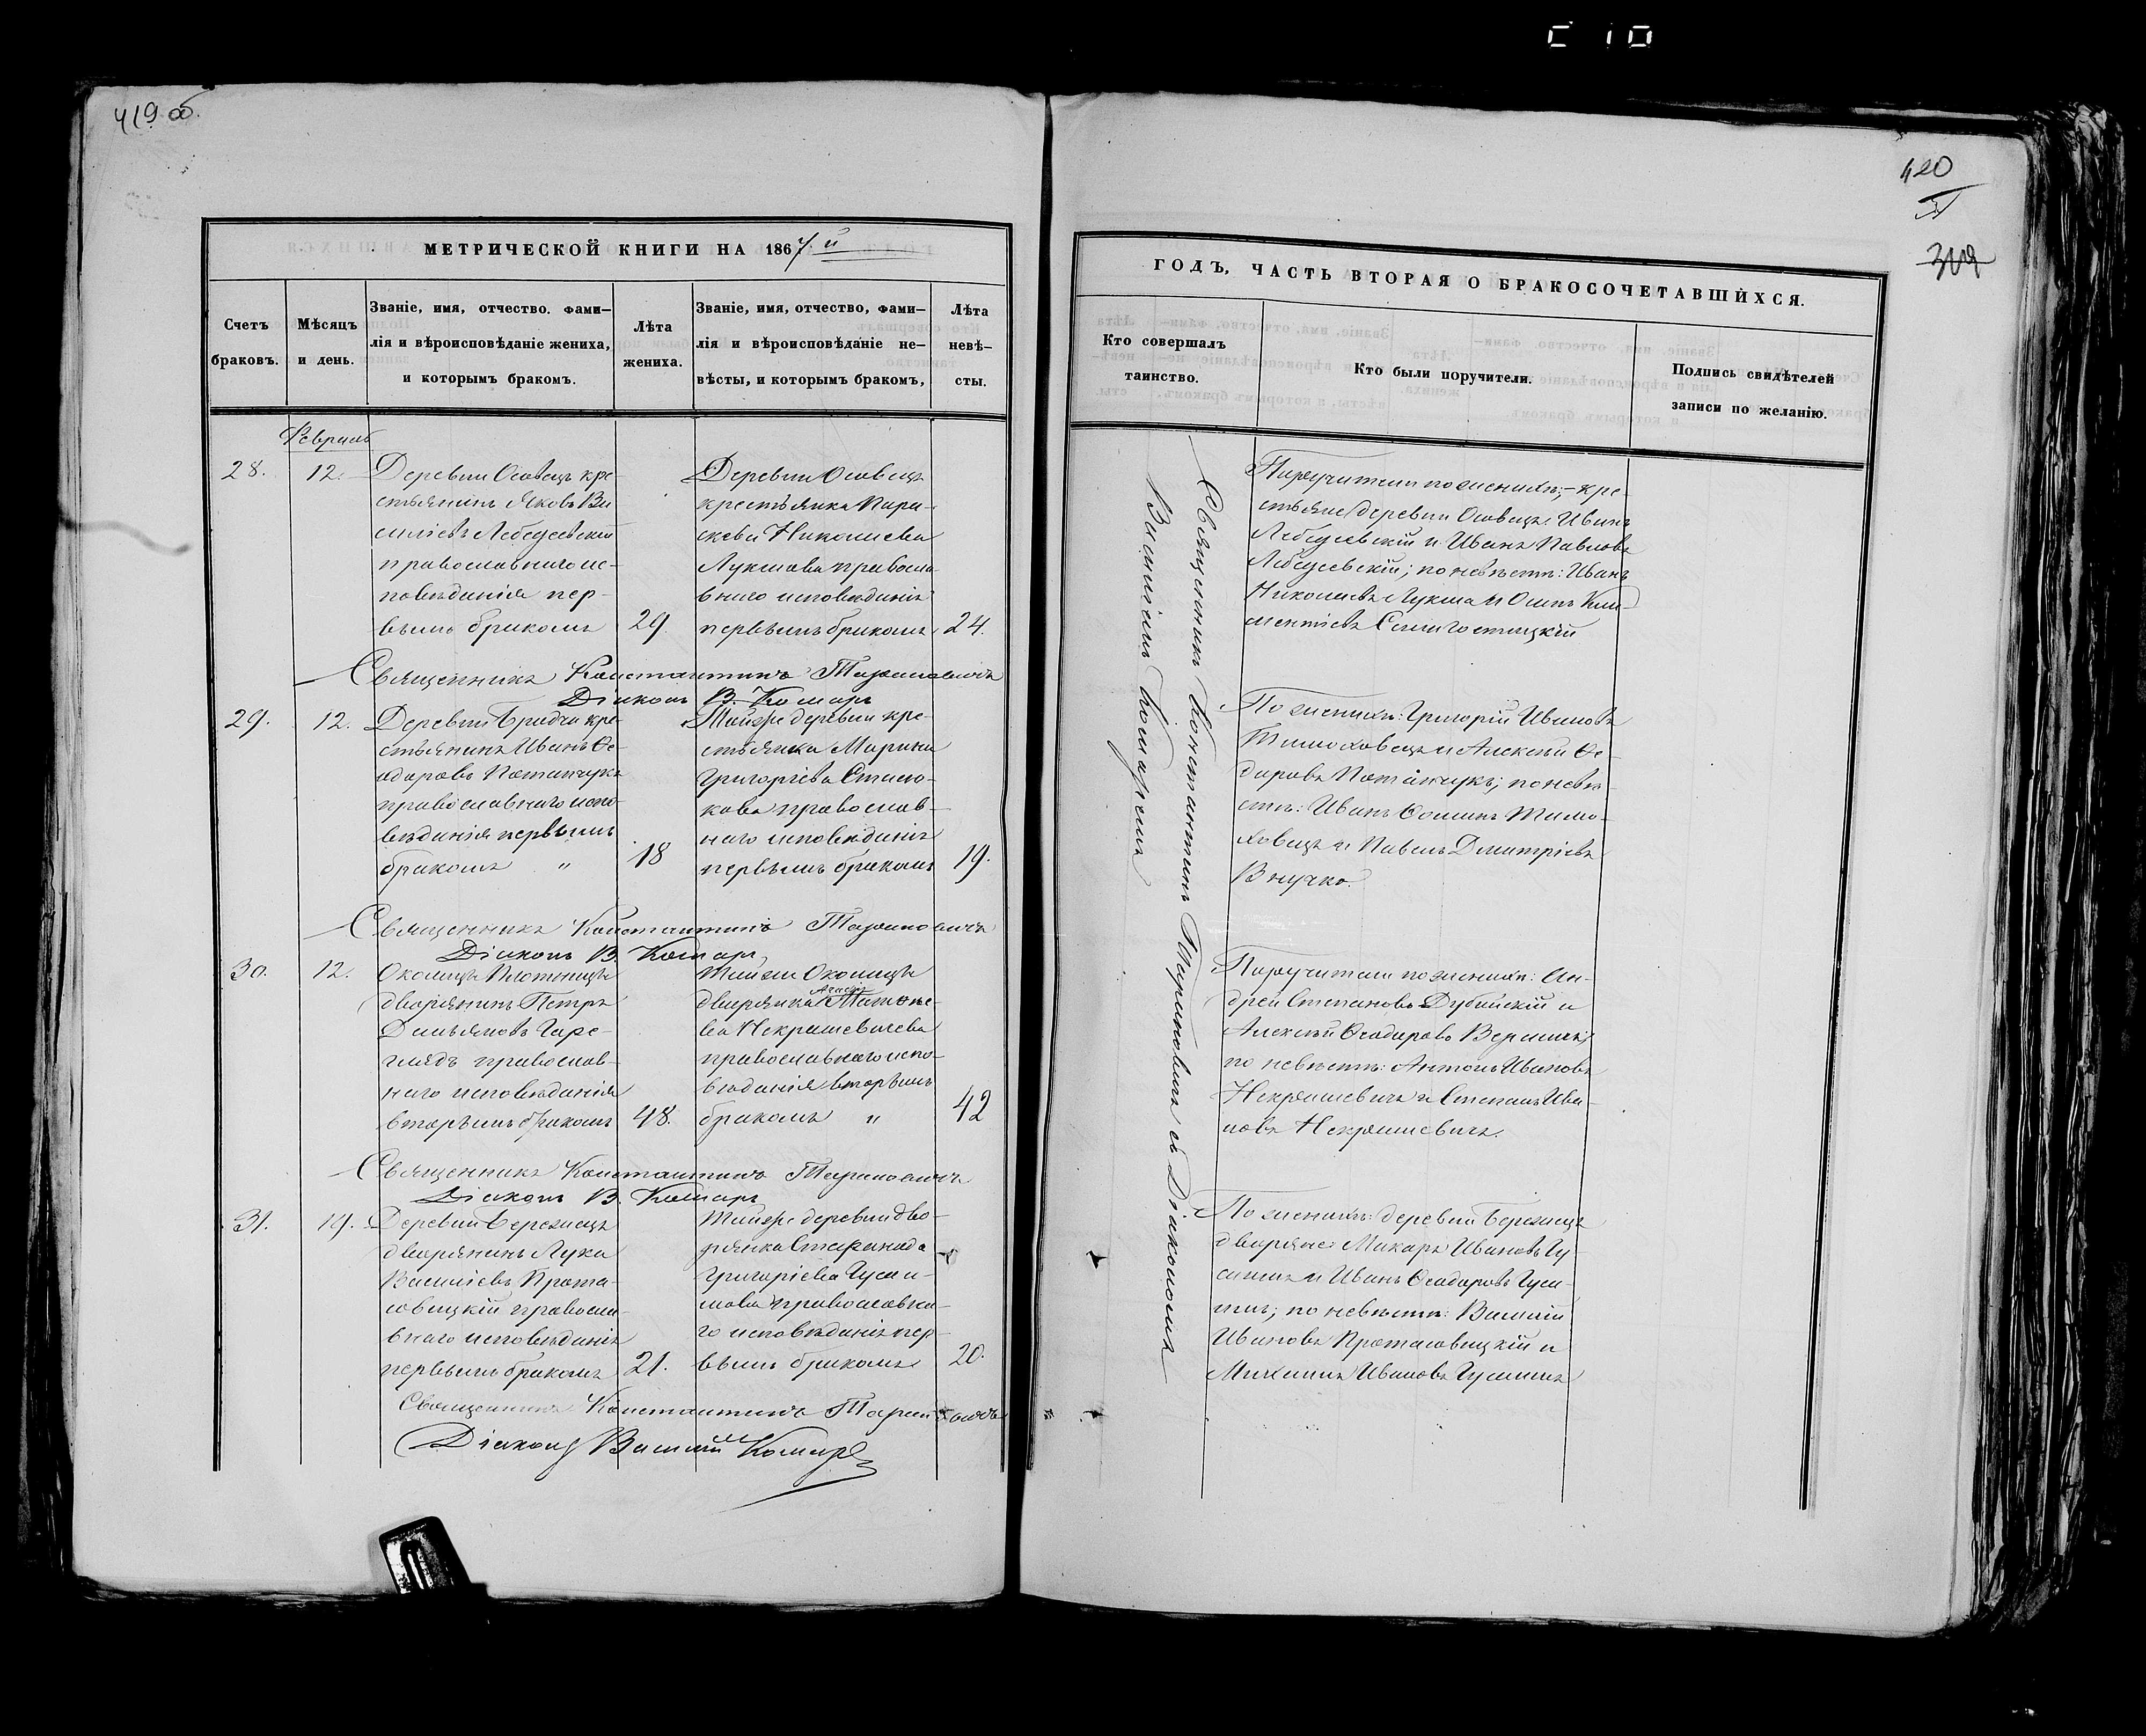 419 об.
МЕТРИЧЕСКОЙ КНИГИ НА 1867й
Счетъ
браковъ.
Мѣсяцъ
и день.
Званіе, имя, отчество. фами-
лія и вѣроисповѣданіе жениха,
и которымъ бракомъ.
Лѣта
жениха.
Званіе, имя, отчество, фами-
лія и вѣроисповѣданіе не-
вѣсты, и которымъ бракомъ,
Лѣта
невѣ-
сты.
Февраль
28.
12.
Деревни Осовецъ кре-
стьянинъ Яковъ Ва
силіевъ Лебедевскій
православнаго ис-
повѣданія пер-
вымъ бракомъ
29.
Деревни Осовецъ
крестьянка Пара-
скева Николаева
Лукшова правосла-
внаго исповѣданія
первымъ бракомъ
24.
Священникъ Константинъ Тарановичъ
Діаконъ В. Комаръ
29.
12.
Деревни Бродча кре-
стьянинъ Иванъ Ѳе-
одоровъ Потапчукъ
православнаго испо-
вѣданія первымъ
бракомъ "
18
Тойже деревни кре-
стьянка Марина
Григоріева Стано-
кова православ-
наго исповѣданія
первымъ бракомъ
19.
Священникъ Константинъ Тарановичъ
Діаконъ В. Комаръ
30.
12.
Околицы Плотницы
дворянинъ Петръ
Демьяновъ Гаре-
глядъ православ-
наго исповѣданія
вторымъ бракомъ
48.
Тойже Околицы
дворянка
ва Некрашевичева
православнаго испо-
вѣданія вторымъ
бракомъ "
42
Священникъ Константинъ Тарановичъ
Діаконъ В. Комаръ
31.
19.
Деревни Бережецъ
дворянинъ Лука
Василіевъ Прота-
совицкій правосла-
внаго исповѣданія
первымъ бракомъ
21.
Тойже деревни дво-
рянка Стефанида
Григоріева Гуса-
кова православна-
го исповѣданія пер-
вымъ бракомъ
20.
Священникъ Константинъ Тарановичъ
Діаконъ Василій Комаръ
420
ГОДЪ, ЧАСТЬ ВТОРАЯ О БРАКОСОЧЕТАВШИХСЯ.
Кто совершалъ
таинство.
Кто были поручители.
Подпись свидѣтелей
записи по желанію.
Священникъ Константинъ Тарановичъ съ Діакономъ
Василіемъ Комаремъ
Поручители по женихѣ:- кре-
стьяне деревни Осовецъ Иванъ
Лебедевскій и Иванъ Павловъ
Лебедевскій; по невѣстѣ: Иванъ
Николаевъ Лукша и Осипъ Кли-
ментіевъ
По женихѣ: Григорій Ивановъ
Тимоховецъ и Алексѣй Ѳе-
доровъ Потапчукъ; по невѣ-
стѣ: Иванъ Ѳоминъ Тимо-
ховецъ и Павелъ Дмитріевъ
Внучко.
Поручители по женихѣ: Ан-
дрей Степановъ Дубицкій и
Алексѣй Ѳеодоровъ
по невѣстѣ: Антонъ Ивановъ
Некрашевичъ и Степанъ Ива-
новъ Некрашевичъ.
По женихѣ: деревни Бережецъ
дворяне: Макаръ Ивановъ Гу-
и Иванъ Ѳеодоровъ
по невѣстѣ: Василій
Ивановъ Протасовицкій и
Михаилъ Ивановъ